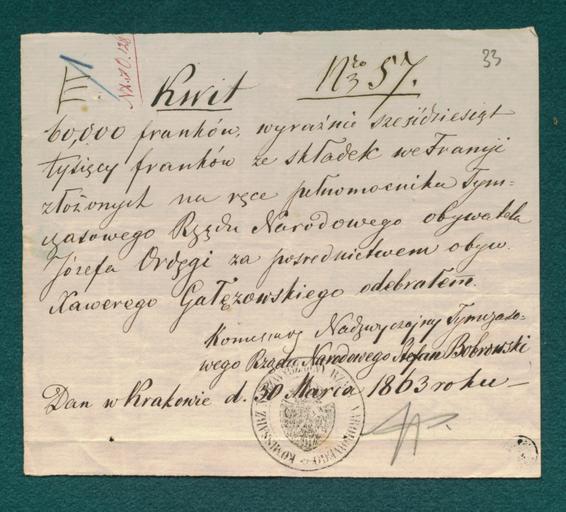 III
33
Kwit Nro 57.
60,000 franków, wyraźnie sześćdziesiąt
tysięcy franków ze składek we Francyi
złożonych na ręce pełnomocnika Tym-
czasowego Rządu Narodowego obywatela
Józefa Ordęgi za pośrednictwem obyw.
Xawerego Gałęzowskiego odebrałem.
Komisarz Nadzwyczajny Tymczaso-
wego Rządu Narodowego Stefan Bobrowski
Dan w Krakowie d. 30 Marca 1863 roku